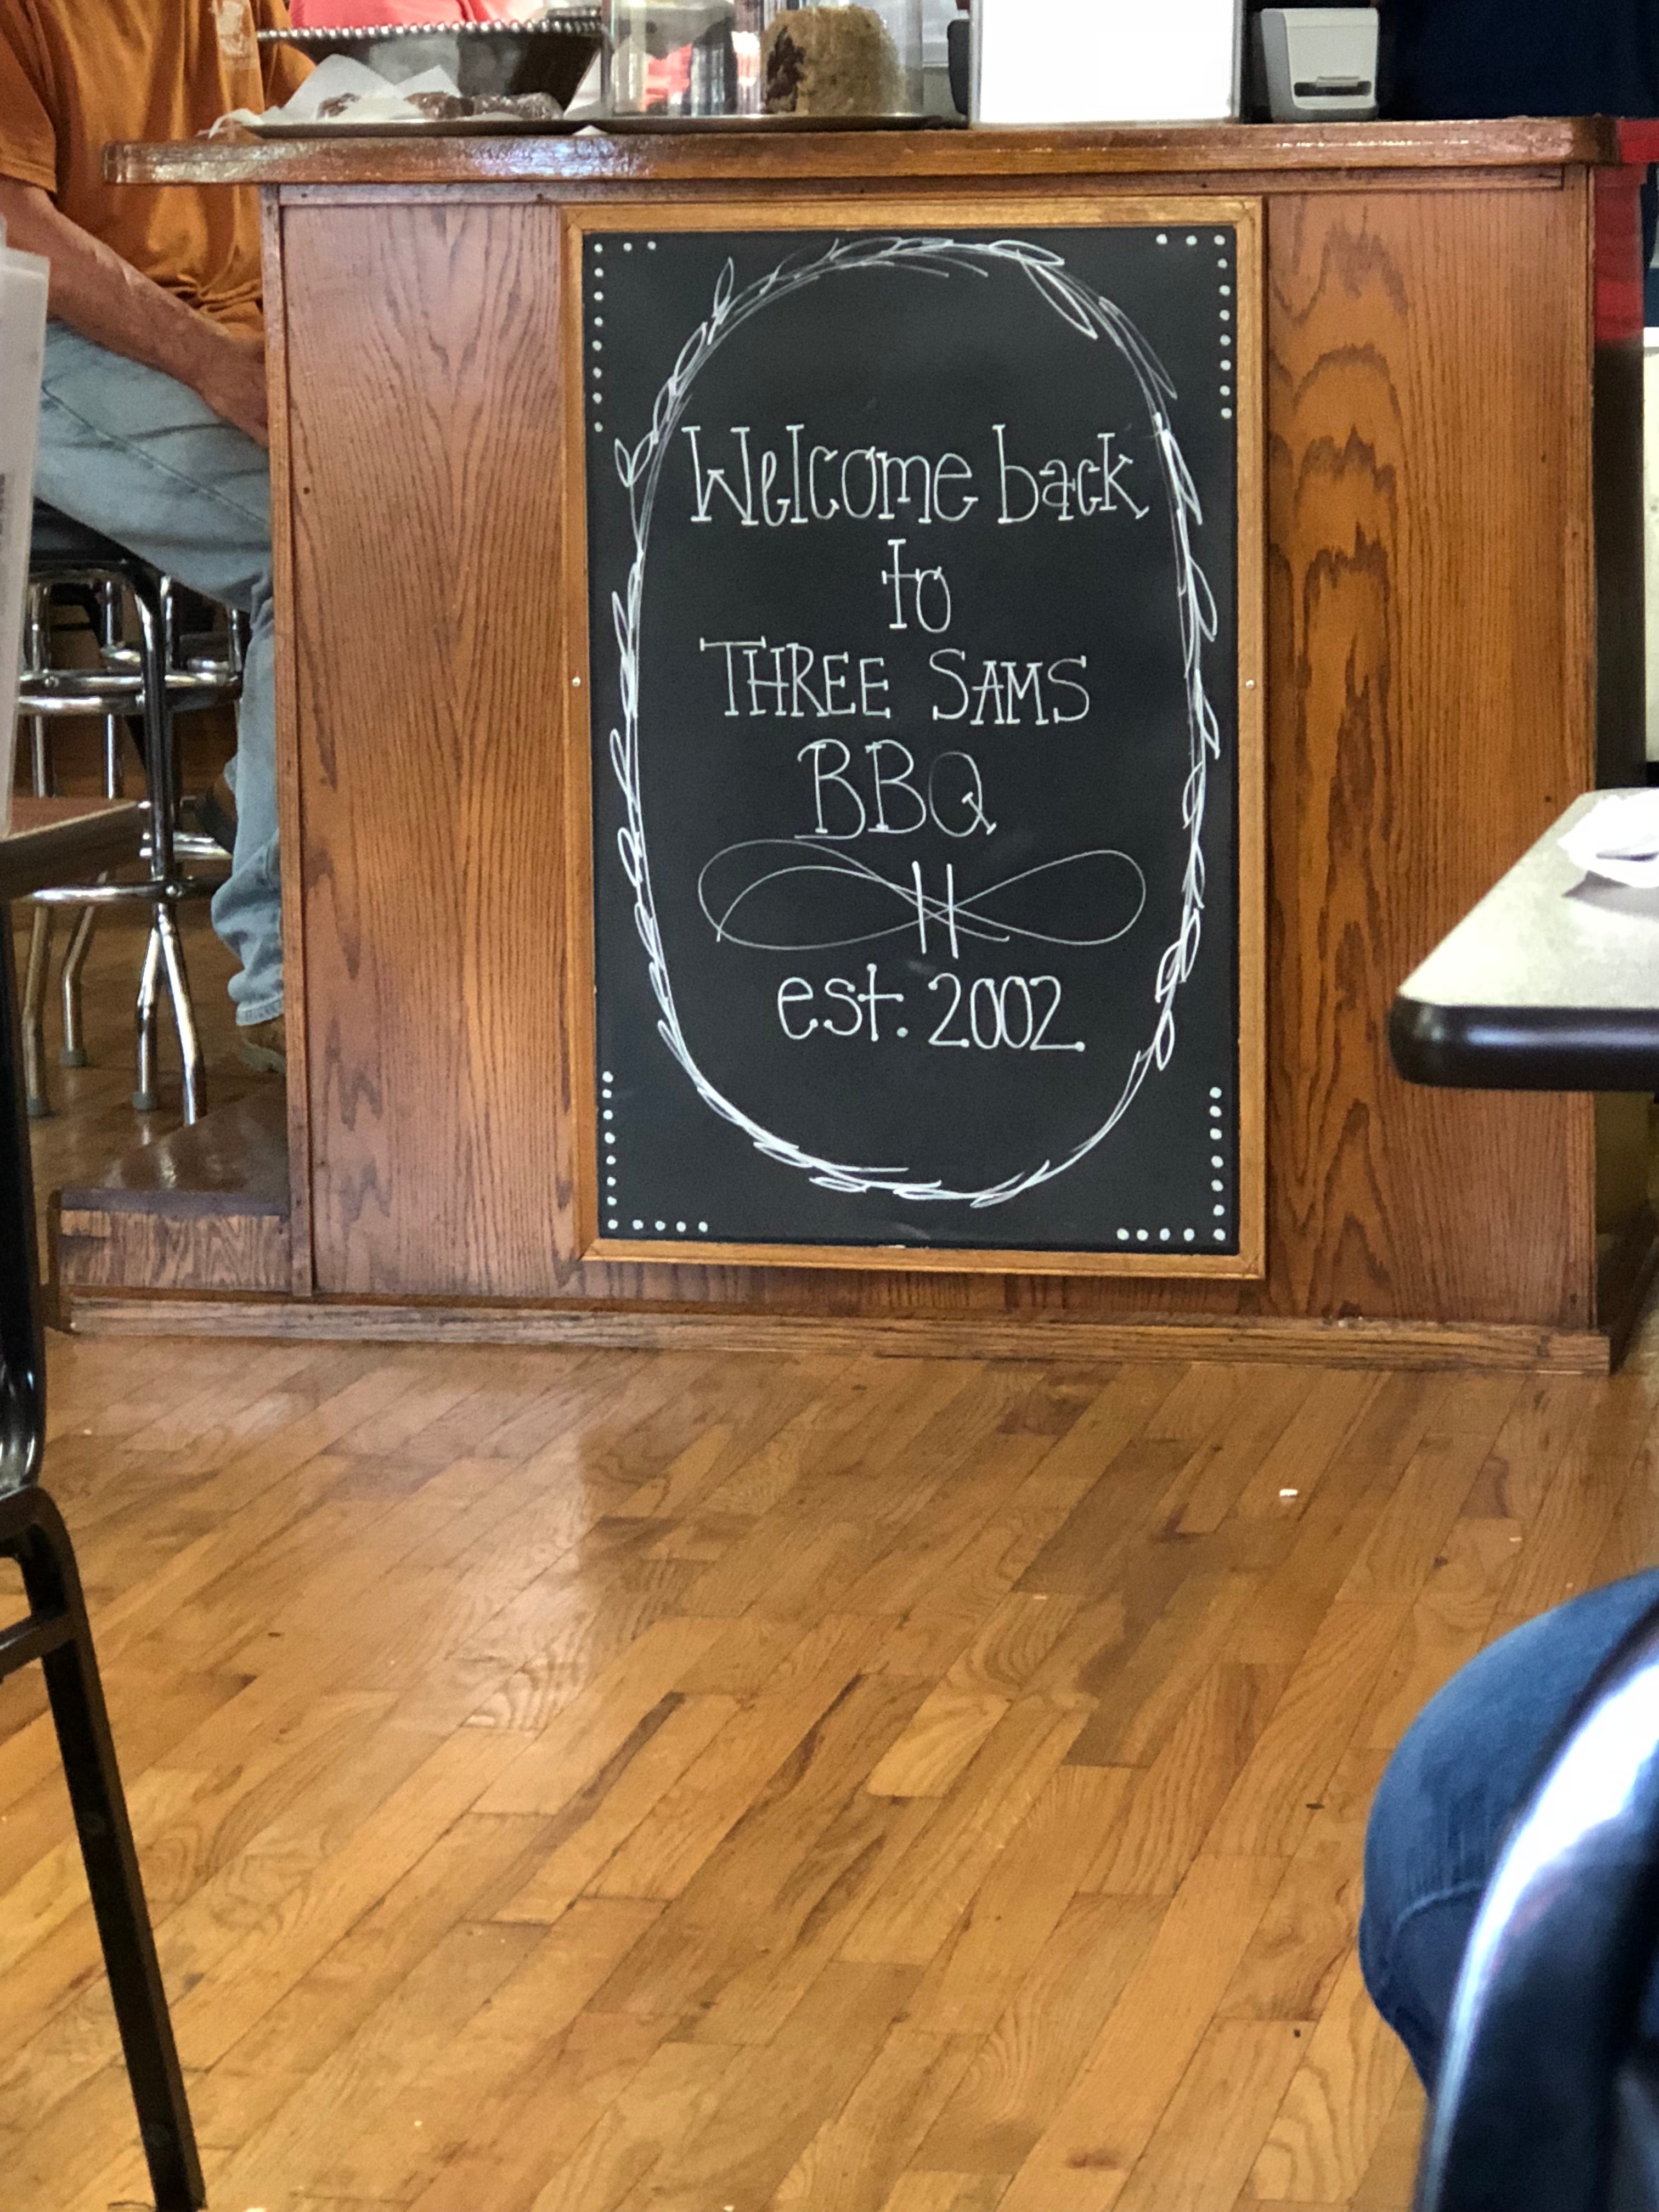 Welcome back
to
THREE SAMS
BBQ
est. 2002